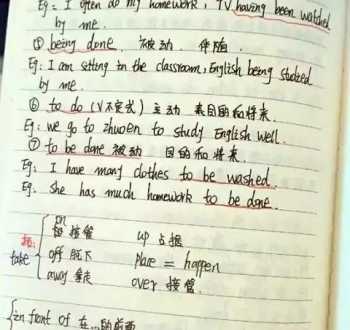 Eg: I often do my homework, TV having been watched
by me.
⑤ being done. 被动. 伴随.
Eg: I am sitting in the classroom, English being studied
by me.
⑥ to do (V不定式) 主动 表目的和将来.
Eg: we go to zhuoen to study English well.
⑦ to be done 被动 目的和将来.
Eg: I have many clothes to be washed.
Eg. She has much homework to be done.
on
接管 up 占据
take off 脱下 place = happen
away 拿走 over 接管.
in front of 在...的前面